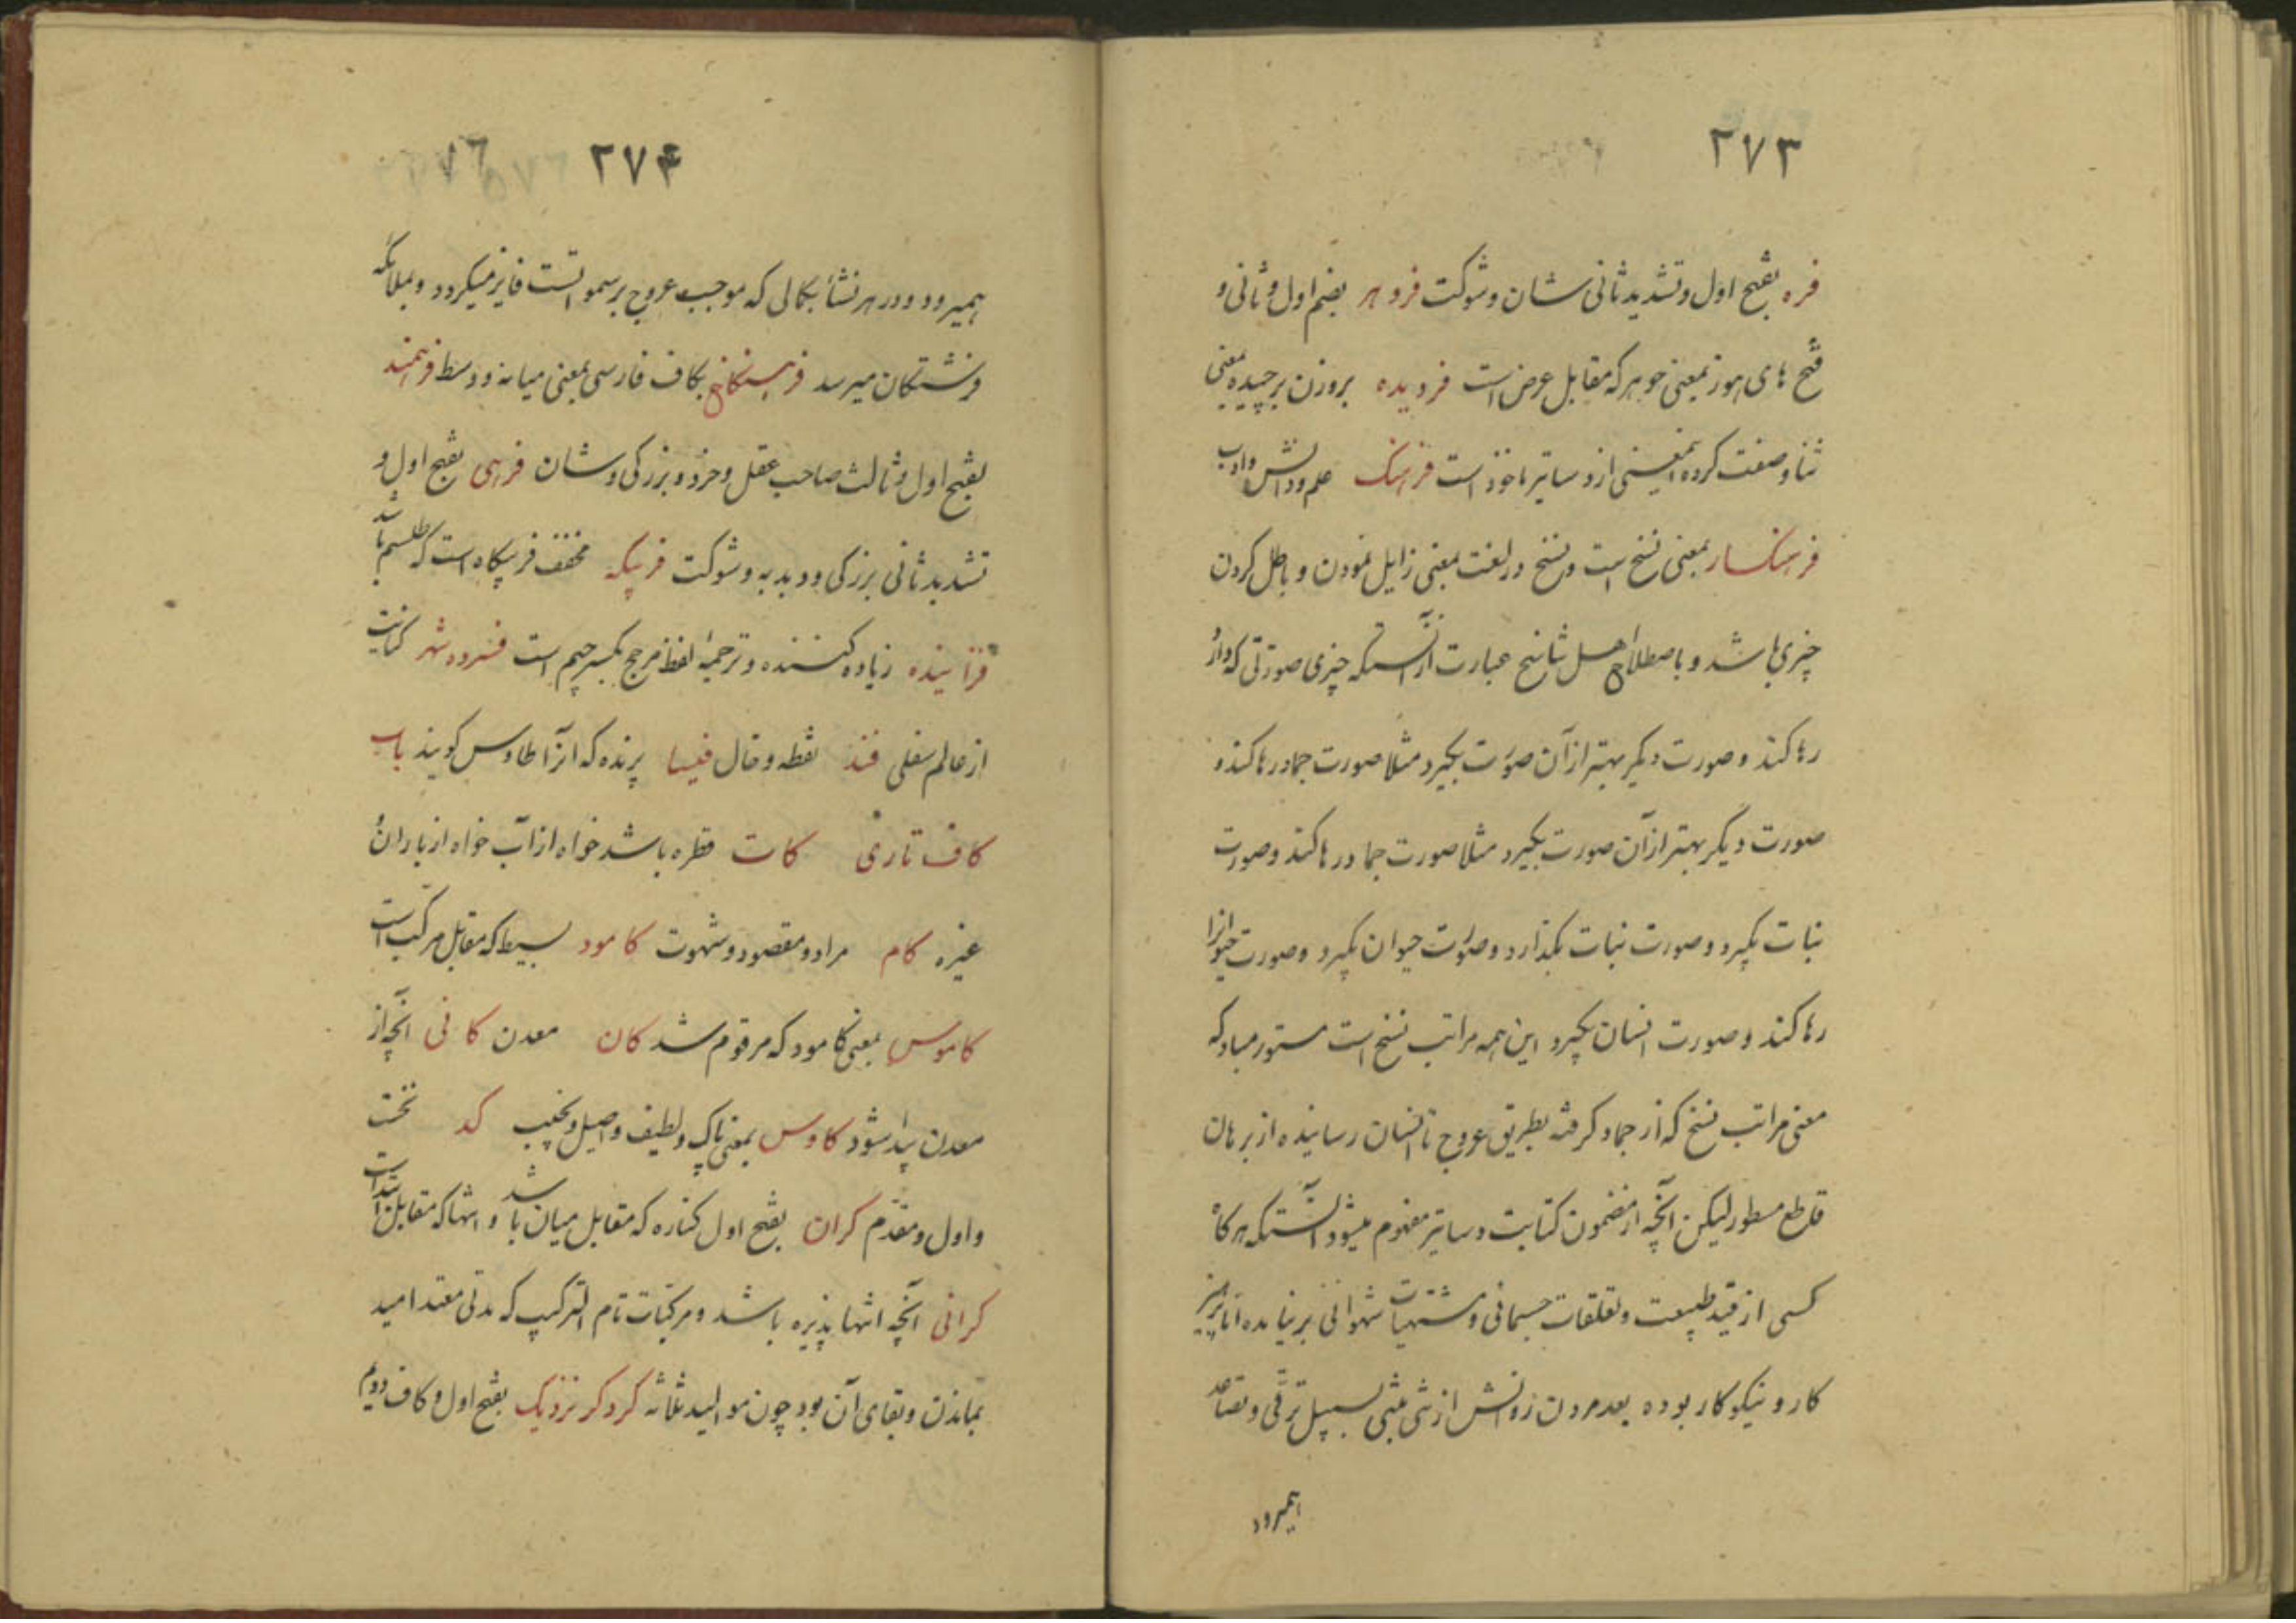 ۲۷۳
فره بفتح اول و تشدید ثانی شان و شوکت فروهر بضم اول و ثانی و
فتح های هوز بمعنی جوهر که مقابل عرض است فردیده بروزن برچیده بمعنی
ثنا و صفت کرده اینمعنی از دساتیر ماخوذ است فرهنگ علم و دانش و ادب
فرهنکسار بمعنی نسخ است و نسخ در لغت بمعنی زایل نمودن و باطل کردن
چیزی باشد و باصطلاح اهل تناسخ عبارت از آنستکه چیزی صورتی که دارد
رها کند و صورت دیگر بهتر از آن صورت بگیرد مثلا صورت جماد رها کند و
صورت دیگر بهتر از آن صورت بگیرد مثلا صورت جماد رها کند و صورت
نبات بگیرد و صورت نبات بگذارد و صورت حیوان بگیرد و صورت حیوانرا
رها کند و صورت انسان بگیرد این همه مراتب نسخ است مستور مباد که
معنی مراتب نسخ که از جماد گرفته بطریق عروج تا انسان رسانیده از برهان
قاطع مسطور لیکن آنچه از مضمون کتابت دساتیر مفهوم میشود آنستکه هرکاه
کسی از قید طبیعت و تعلقات جسمانی و مشتهیات شهوانی برنیامده اما پرهیز
کار و نیکو کار بوده بعد مردن روانش از تنی بتنی بسبیل ترقی و تصاعد
همیرود
۲۷۴
همیرود و در هر نشأ بکمالی که موجب عروج بر سموات است فایز میکردد و بملائکه
فرشتکان میرسد فرهستکاخ بکاف فارسی بمعنی میانه و وسط فرهمند
بفتح اول و ثالث صاحب عقل و خرد و بزرکی و شان فرهی بفتح اول و
تشدید ثانی بزرکی و دبدبه و شوکت فریبکه مخفف فریبکاه است که طلسم باشد
فزاینده زیاده کننده و ترجمهٔ لفظ مرجح بکسر جیم است فسرده شهر کنایت
از عالم سفلی فند نقطه و خال فیسا پرنده که آنرا طاوس کویند باب
کاف تازی کات قطره باشد خواه از آب خواه از باران و
غیره کام مراد و مقصود و شهوت کامود بسیط که مقابل مرکب است
کاموس بمعنی کامود که مرقوم شد کان معدن کانی آنچه از
معدن پیدا شود کاوس بمعنی پاک و لطیف و اصیل و نجیب کد نخست
و اول و مقدم کران بفتح اول کناره که مقابل میان باشد و انتها که مقابل ابتدا است
کرانی آنچه انتها پذیره باشد و مرکبات تام الترکیب که مدتی معتد امید
بماندن و بقای آن بود چون موالید ثلاثه کردکر نزدیک بفتح اول و کاف دویم